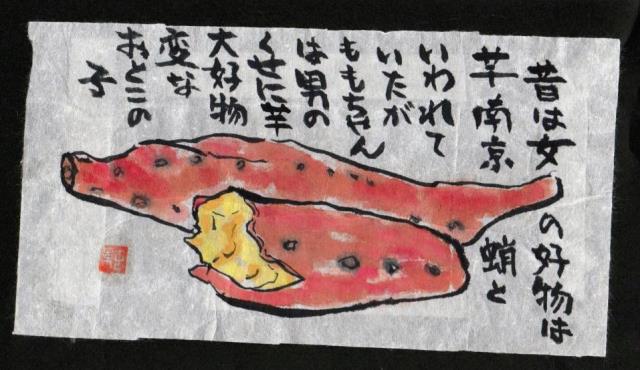 昔は女の好物は
芋南京 蛸と
いわれて
いたが
ももちゃん
は男の
くせに芋
大好物
変な
おとこの
子